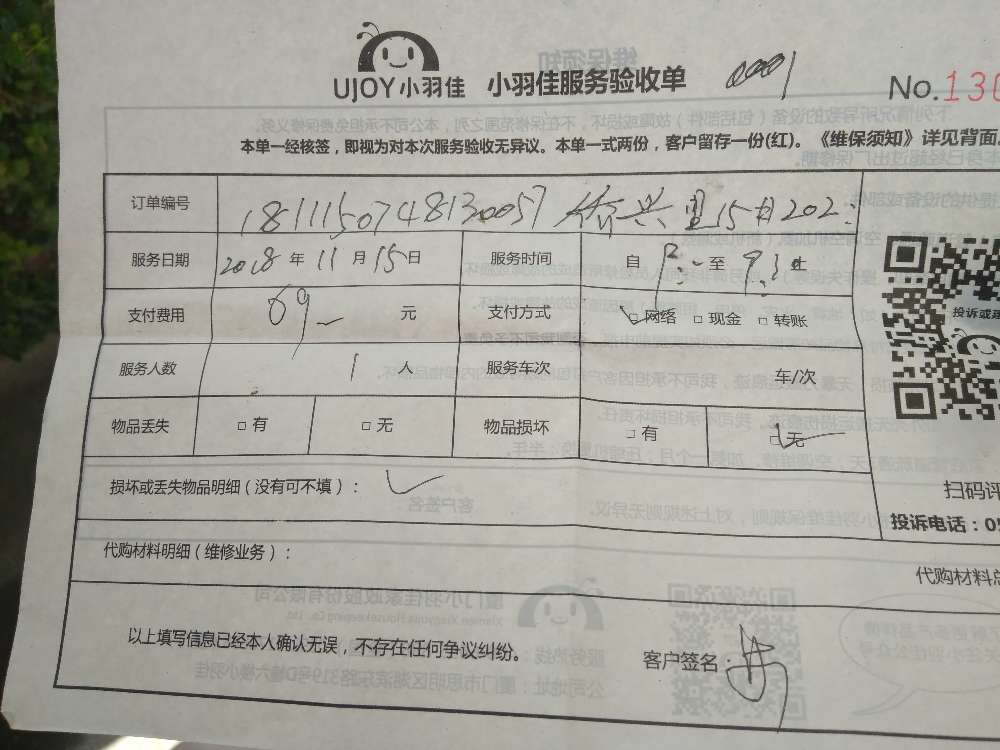 UJOY小羽佳 小羽佳服务验收单 0001 No.130
本单一经核签，即视为对本次服务验收无异议。本单一式两份，客户留存一份(红)。《维保须知》详见背面。
订单编号 181115074813005 兴 15 202
服务日期 2018 年 11 月 15 日 服务时间 自 至
支付费用 69 元 支付方式 □网络 □现金 □转账
投诉或建
服务人数 1 人 服务车次 车/次
物品丢失 □有 □无 物品损坏 □有 □无
损坏或丢失物品明细（没有可不填）：
扫码评
投诉电话：05
代购材料明细（维修业务）：
代购材料总
以上填写信息已经本人确认无误，不存在任何争议纠纷。
客户签名：